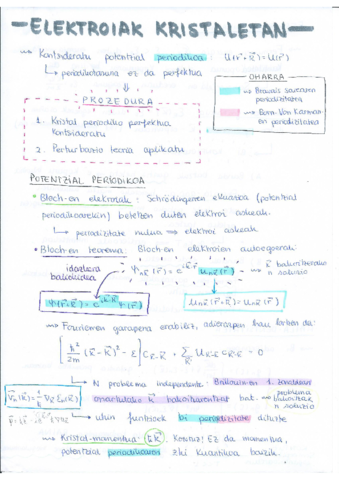 ELEKTROIAK KRISTALETAN
Kontsideratu potentzial periodikoa: U(r⃗+R⃗)=U(r⃗)
periodikotasuna ez da perfektua
OHARRA
Bravais sarearen periodizitatea
Born-Von Karman-en periodizitatea
PROZEDURA
1. Kristal periodiko perfektua kontsideratu
2. Perturbazio teoria aplikatu
POTENTZIAL PERIODIKOA
• Bloch-en elektroiak: Schrödingeren ekuazioa (potentzial
periodikoarekin) betetzen duten elektroi askeak.
periodizitate nulua ⟹ elektroi askeak
• Bloch-en teorema: Bloch-en elektroien autoegoerak:
idazkera baliokidea
ψnk⃗(r⃗) = e^{ik⃗·r⃗} unk⃗(r⃗)
k⃗ bakoitzerako n soluzio
ψ(r⃗+R⃗) = e^{ik⃗·R⃗} ψ(r⃗)
unk⃗(r⃗+R⃗) = unk⃗(r⃗)
→ Fourieren garapena erabiliz, adierazpen hau lortzen da:
[ħ²/2m (k⃗-K⃗)² - ε] C
+ Σ
= 0
→ N problema independente: Brillouin-en 1. zonaldean
onartutako k⃗ bakoitzarentzat bat.
problema bakoitzak n soluzio
uhin funtzioek bi periodizitate dituzte
→ Kristal-momentua: ħk⃗. Kontuz! Ez da momentua,
potentzial periodikoaren zki kuantikoa baizik.